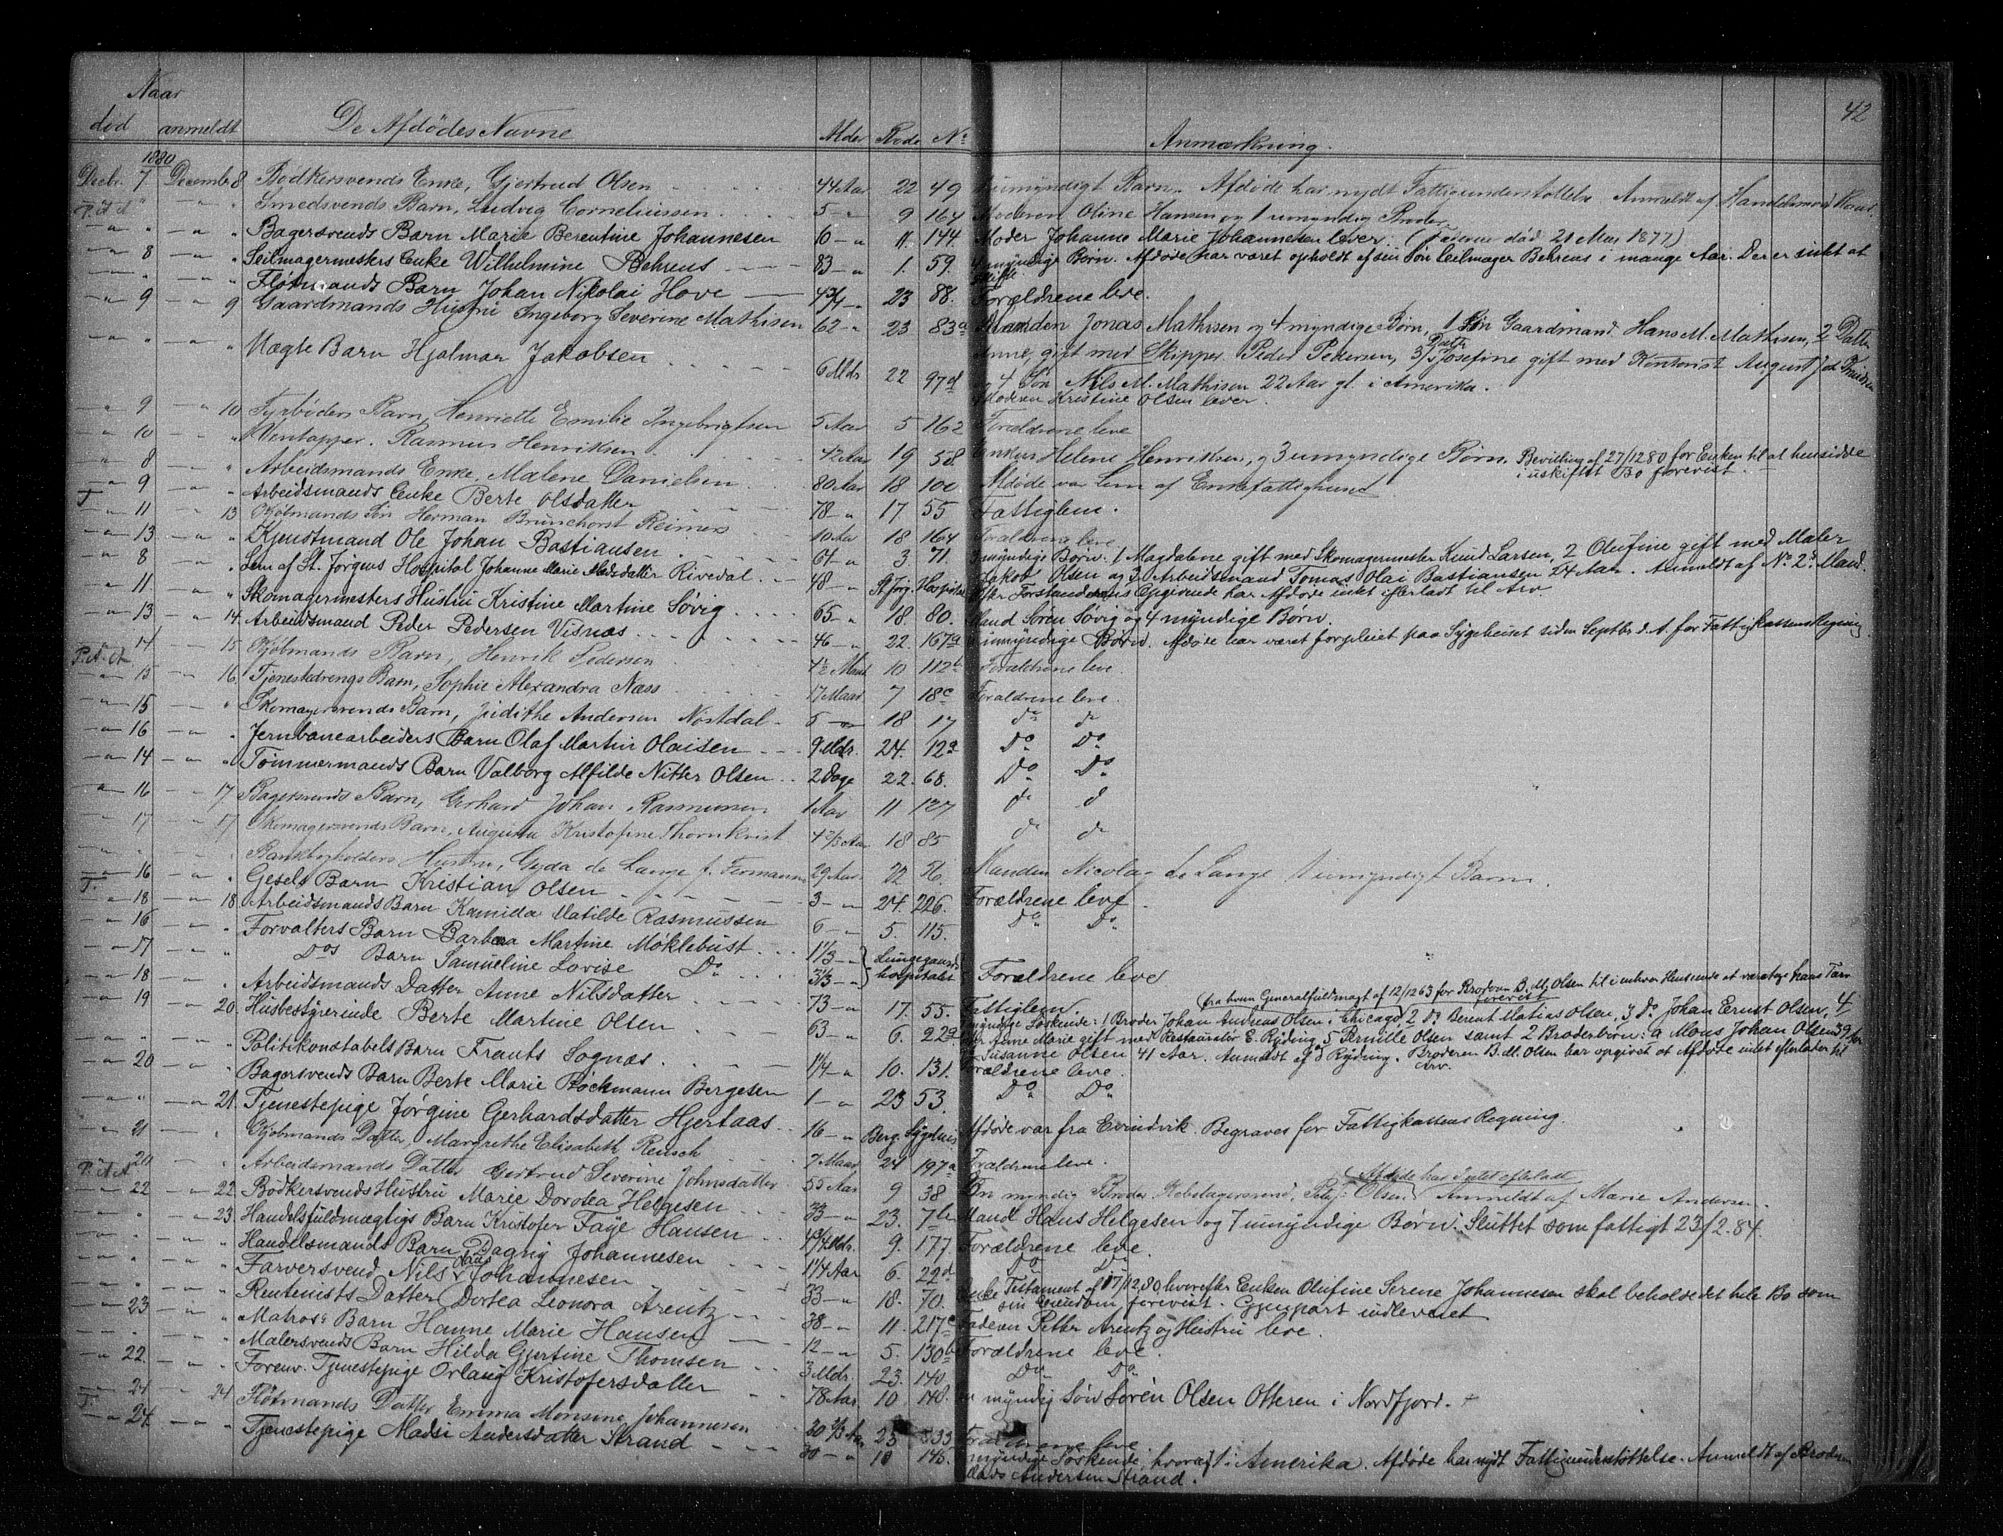 42
Naar
død anmeldt De Afdødes Navne Alder Rode No Anmærkning.
1880
Decbr. 7 December 8 Bødkersvends Enke, Gjertrud Olsen 44 Aar 22 49 umyndigt Barn. Afdøde har nydt Fattigunderstøttelse. Anmeldt af Handelsmand
P.d.A. " " Smedsvends Barn, Ludvig Corneliussen 5 " 9 164 Moderen Oline Hansen og 1 umyndig Broder
" " " Bagersvends Barn Marie Berentine Johannesen 6 " 11. 144. Moder Johanne Marie Johannesen lever. (Faderen død 21 Mai 1877)
" 8 " Seilmagermesters Enke Wilhelmine Behrens 83 " 1. 59. myndige Børn. Afdøde har været opholdt af sin Søn Seilmager Behrens i mange Aar. Der er intet at
skifte
" " " Fløtmands Barn Johan Nikolai Hove 4 3/4 " 23 88. Forældrene leve.
" 9 9 Gaardmands Hustru Ingeborg Severine Mathisen 62 " 23 83a Manden Jonas Mathisen og 4 myndige Børn, 1 Søn Gaardmand Hans M. Mathisen, 2 Datter
Anne, gift med Skipper Peder Pedersen, 3/ Datter Josefine gift med Kontorist August
og 4 Søn Nils M. Mathisen 22 Aar gl. i Amerika.
" " " Uægte Barn Hjalmar Jakobsen 6 Mdr 22 97d Moderen Kristine Olsen lever.
" 9 " 10 Fyrbøders Barn, Henriette Emilie Ingebrigtsen 5 Aar 5 162 Forældrene leve
" 10 " Vintapper. Rasmus Henriksen 42 Aar 19 58 Enken Helene Henriksen, og 3 umyndige Børn. Bevilling af 27/12 80 for Enken til at hensidde
i uskiftet Bo forevist.
" 8 " Arbeidsmands Enke, Malene Danielsen 80 Aar 18 100 Afdøde var Lem af Enkefattighuset
" 9 " Arbeidsmands Enke Berte Olsdatter 78 " 17 55 Fattiglem.
T " 11 " 13 Kjøbmands Søn Herman Brunchorst Reimers 10 Aar 18 164 Forældrene leve
" 13 " Tjenstmand Ole Johan Bastiansen 64 " 3 71. 3 myndige Børn: 1 Magdalene gift med Skomagermester Knud Larsen, 2 Olufine gift med Maler
Jakob Olsen og 3 Arbeidsmand Tomas Olai Bastiansen 24 Aar. Anmeldt af No 2s Mand.
" 8 " Lem af St. Jørgens Hospital Johanne Marie Madsdatter Rivedal 48 " St Jørg. Hospital Efter Forstanderens Opgivende har Afdøde intet efterladt til Arv
" 11 " Skomagermesters Hustru Kristine Martine Søvig 65 " 18 80. Mand Søren Søvig og 4 myndige Børn.
" 13 " 14. Arbeidsmand Peder Pedersen Visnæs 46 " 22. 167a umyndige Børn. Afdøde har været forpleiet paa Sygehuset siden Septbr d.A. for Fattigkassens Regning
" 14 " 15 Kjøbmands Barn, Henrik Pedersen 4½ Maan 10 112b Forældrene leve
P.d.A. " 15 " 16 Tjenestedrengs Barn, Sophie Alexandra Næss 17 Maan 7 18c Forældrene leve.
" 15 " Skomagersvends Barn, Judithe Andersen Nøstdal 5 " 18 17 do do
" 16 " Jernbanearbeiders Barn Olaf Martin Olaisen 9 Mdr. 24. 12a Do Do
" 14 " Tømmermands Barn Valborg Alfilde Nitter Olsen 2 Dage 22. 68. Do Do
" 16 17 Bagersvends Barn, Gerhard Johan Rasmussen 1 Aar 11 127 do do
" 17 17 Skomagersvends Barn, Augusta Kristofine Thornkvist 4 2/3 Aar 18 85 do do
" " " Bankbogholders Hustru, Gyda de Lange f. Fermann 29 Aar 22 56. Manden Nicolay de Lange 1 umyndigt Barn.
T. 16 " Gesels Barn Kristian Olsen 3 " 24. 226. Forældrene leve
" 18 18 Arbeidsmands Barn Kamilla Matilde Rasmussen 6 " 5. 115. Do Do
" 16 " Forvalters Barn Barbara Martine Møklebust 1 1/3 " Lungegaards
" 17 " Dos Barn Samueline Lovise Do 3 1/3 " hospitalet Forældrene leve
" 18 " Arbeidsmands Datter Anne Nilsdatter 73 " 17. 55. Fattiglem.
(fra hvem Generalfuldmagt af 12/12 63 for Broderen B. M. Olsen til i enhver Henseende at varetage hans Tarv
forevist
" 19 20. Husbestyrerinde Berte Martine Olsen 63 " 6. 22a myndige Søskende: 1 Broder Johan Andreas Olsen i Chicago 2 Do Berent Matias Olsen, 3 Do Johan Ernst Olsen, 4
Anne Marie gift med Restauratør E. Ryding 5 Pernille Olsen samt 2 Broderbørn: a Mons Johan Olsen 39 Aar
Susanne Olsen 41 Aar. Anmeldt af E. Ryding. Broderen B. M. Olsen har opgivet at Afdøde intet efterlader til
Arv.
" " " Politikonstabels Barn Frants Sognæs 1 1/4 " 10. 131. Forældrene leve.
" 20 " Bagersvends Barn Berte Marie Bøckmann Bergesen 1 " 23 53. Do Do
" " 21. Tjenestepige Jørgine Gerhardsdatter Hjertaas 16 " Berg. Sygehus Afdøde var fra Evindvik Begraves for Fattigkassens Regning.
" 21 " Kjøbmands Datter, Margrethe Elisabeth Reusch 7 Maan 24 197a Forældrene leve.
(Afdøde har Intet efterladt
P.d.A. 20 " Arbeidsmands Datter Gertrud Severine Johnsdatter 55 Aar 9 38 En myndig Broder, Olsen Anmeldt af Marie Andersen.
" 22 22. Bødkersvends Hustru Marie Dorotea Helgesen 33 " 23. 7b Mand Hans Helgesen og 7 umyndige Børn. Sluttet som fattigt 23/2. 84.
" " 23. Handelsfuldmægtigs Barn Kristofer Faye Hansen 4 3/4 Mdr. 9. 177. Forældrene leve.
" " " Handelsmands Barn Dagny Johannesen 1 1/4 Aar 6. 22d Do Do
" " " Farversvend Nils Johannesen 33 " 18. 70. Enke Testament af 17/12 80, hvorefter Enken Olufine Serene Johannesen skal beholde det hele Bo som
sin Eiendom forevist. Gjenpart udleveret
" " " Rentenists Datter Dortea Leonora Arentz 38 " 11. 217c Faderen Petter Arentz og Hustru leve.
" 23 " Matros's Barn Hanne Marie Hansen 12 " 5. 130b Forældrene leve.
" " " Malersvends Barn Hilda Gjertine Thomsen 3 Mdr. 23. 140 Do Do
" 22. " Forenv. Tjenestepige Orlaug Kristofersdatter 78 Aar 10 148. En myndig Søn Søren Olsen Otteren i Nordfjord. +
T. 21 24 Fløtmands Datter Emma Monsine Johannesen 20 2/3 Aar 23 333 Forældrene leve
" 24. " Tjenestepige Madsi Andersdatter Strand 30 " 10 145 myndige Søskende, hvoraf 1 i Amerika. Afdøde har nydt Fattigunderstøttelse. Anmeldt af Broderen
Mads Andersen Strand.